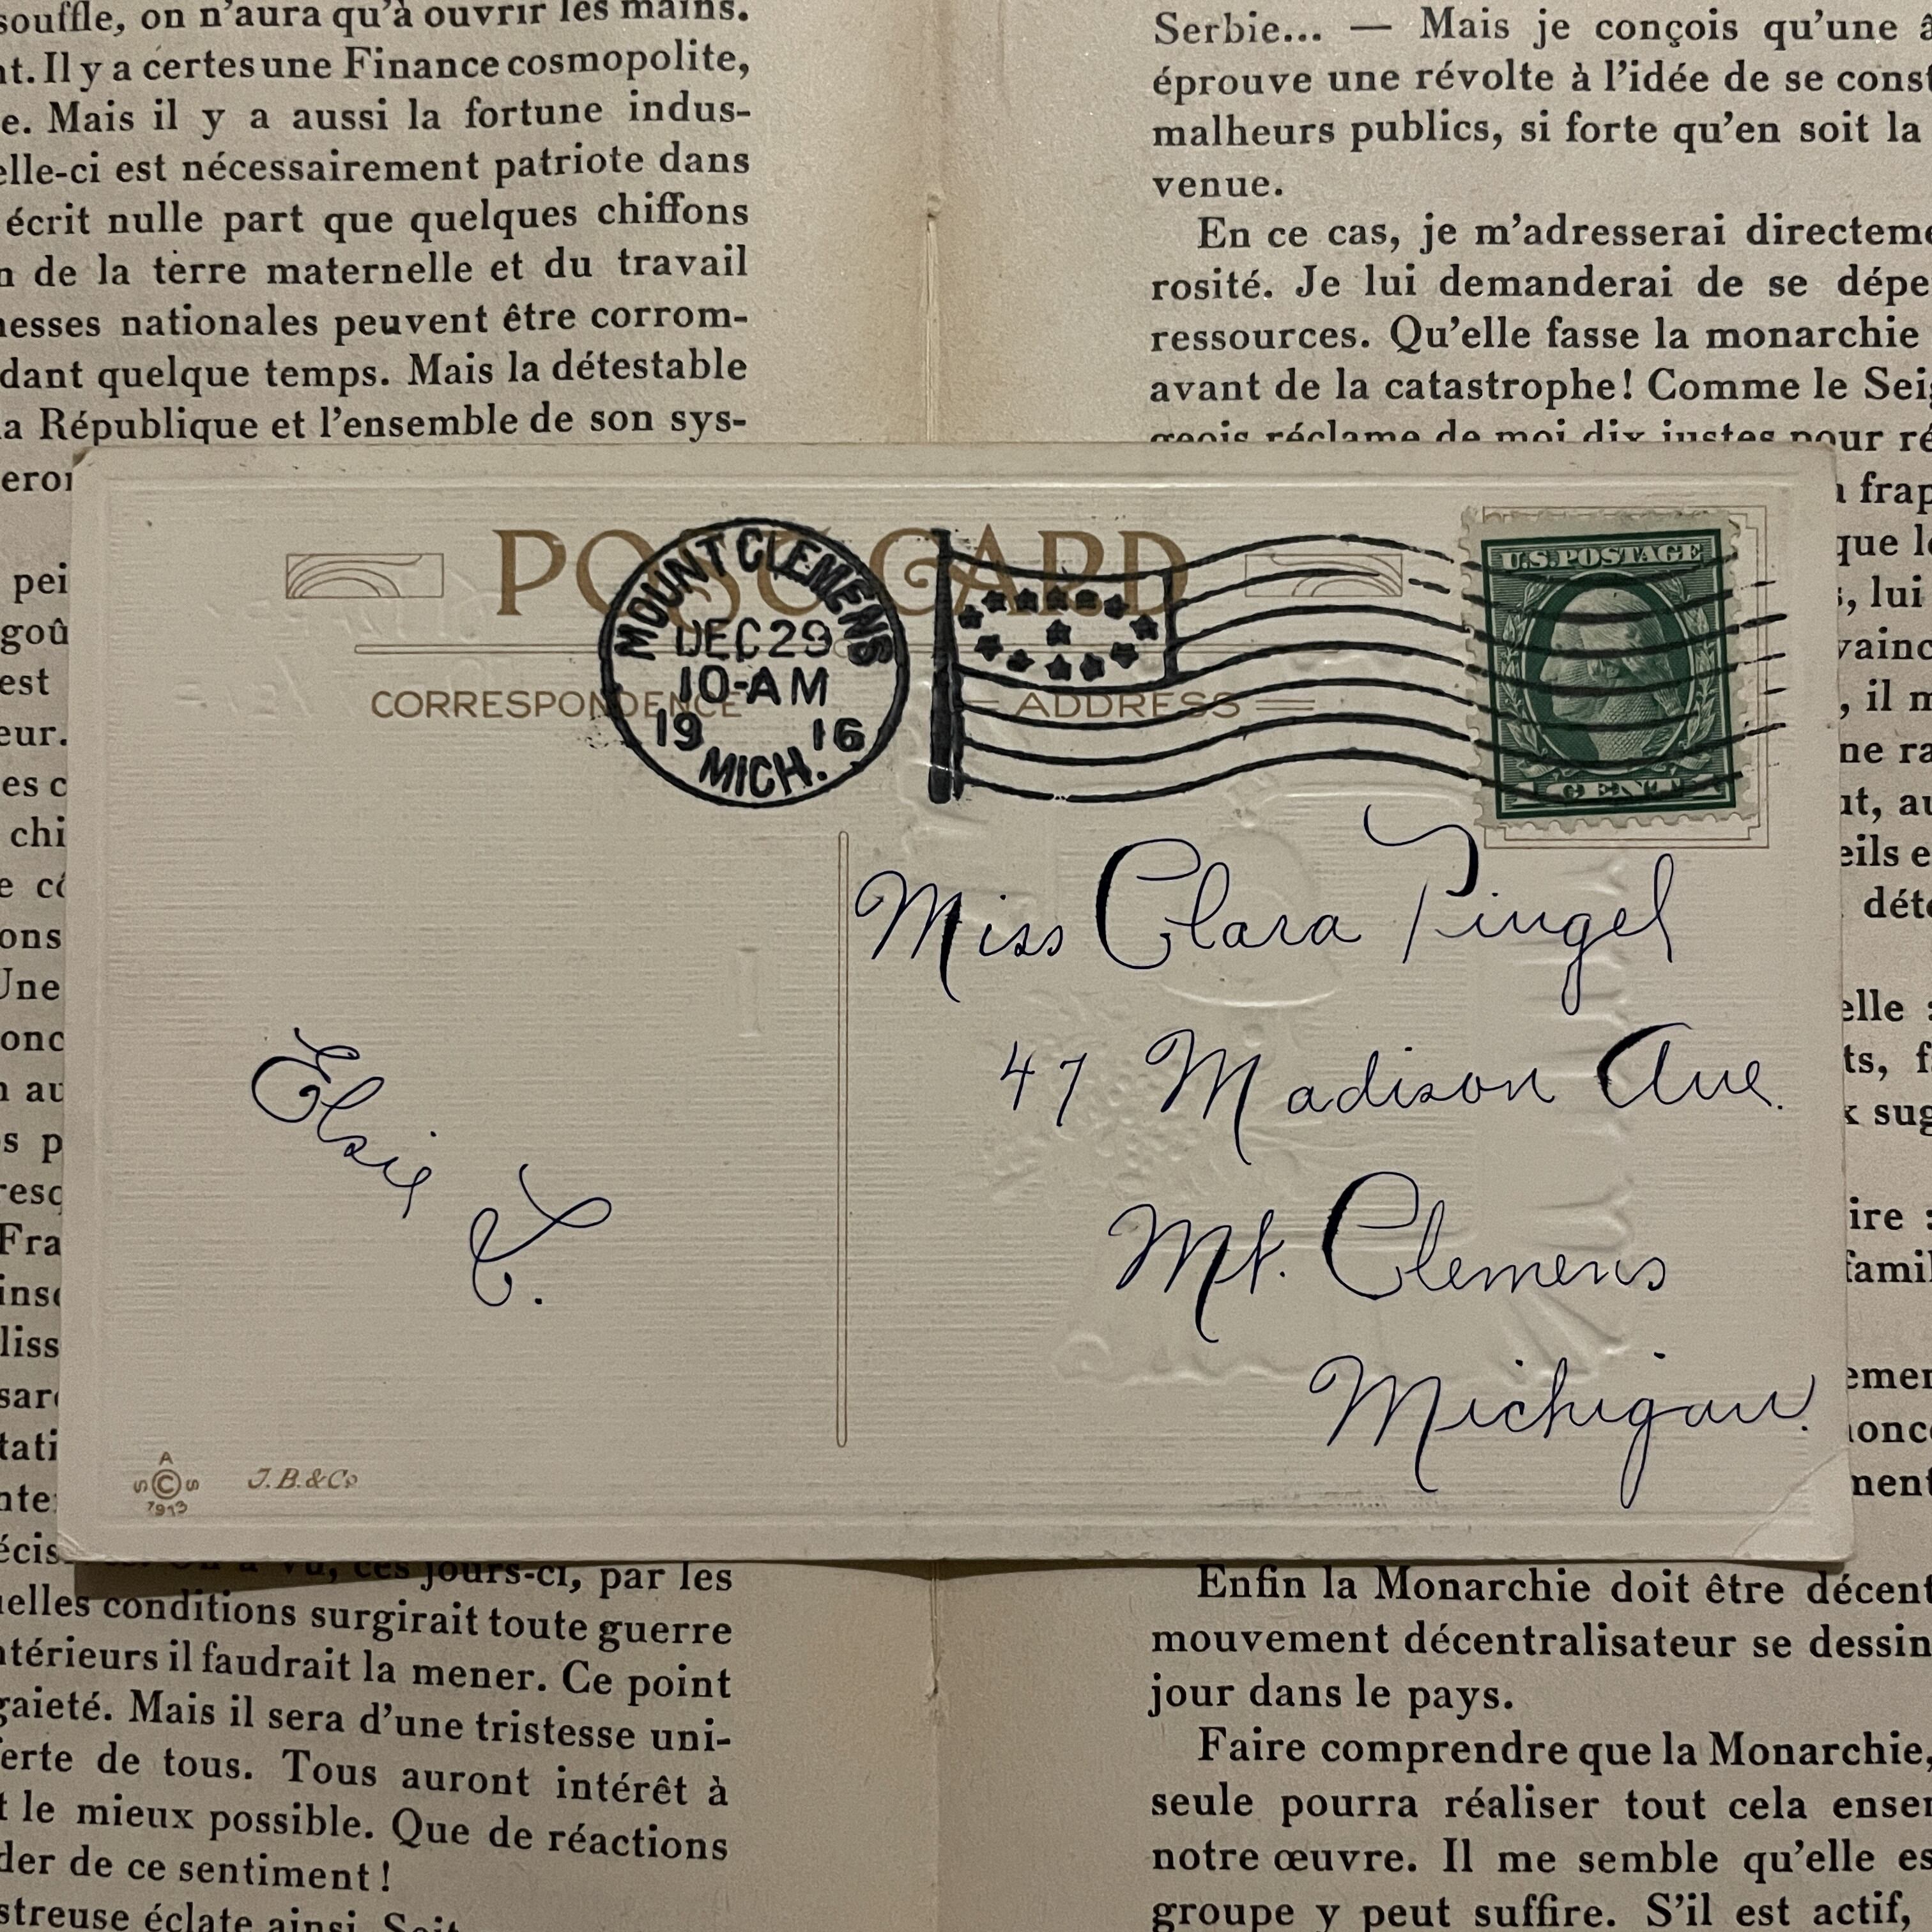 souffle, on n'aura qu'à ouvrir les mains.
nt. Il y a certes une Finance cosmopolite,
e. Mais il y a aussi la fortune indus-
elle-ci est nécessairement patriote dans
écrit nulle part que quelques chiffons
n de la terre maternelle et du travail
nesses nationales peuvent être corrom-
dant quelque temps. Mais la détestable
la République et l'ensemble de son sys-
Serbie... — Mais je conçois qu'une â
éprouve une révolte à l'idée de se const
malheurs publics, si forte qu'en soit la
venue.
En ce cas, je m'adresserai directeme
rosité. Je lui demanderai de se dépe
ressources. Qu'elle fasse la monarchie
avant de la catastrophe! Comme le Sei
geois réclame de moi dix justes pour ré
POST CARD
CORRESPONDENCE
ADDRESS
MOUNT CLEMENS
DEC 29
10-AM
19 16
MICH.
U.S. POSTAGE
1 CENT 1
Miss Clara Pingel
47 Madison Ave.
Mt. Clemens
Michigan.
Elsie
A
S © S
1913
J.B. & Co
ces jours-ci, par les
uelles conditions surgirait toute guerre
ntérieurs il faudrait la mener. Ce point
gaieté. Mais il sera d'une tristesse uni-
erte de tous. Tous auront intérêt à
t le mieux possible. Que de réactions
der de ce sentiment!
streuse éclate ainsi. Soit
Enfin la Monarchie doit être décent
mouvement décentralisateur se dessin
jour dans le pays.
Faire comprendre que la Monarchie,
seule pourra réaliser tout cela enser
notre œuvre. Il me semble qu'elle es
groupe y peut suffire. S'il est actif,